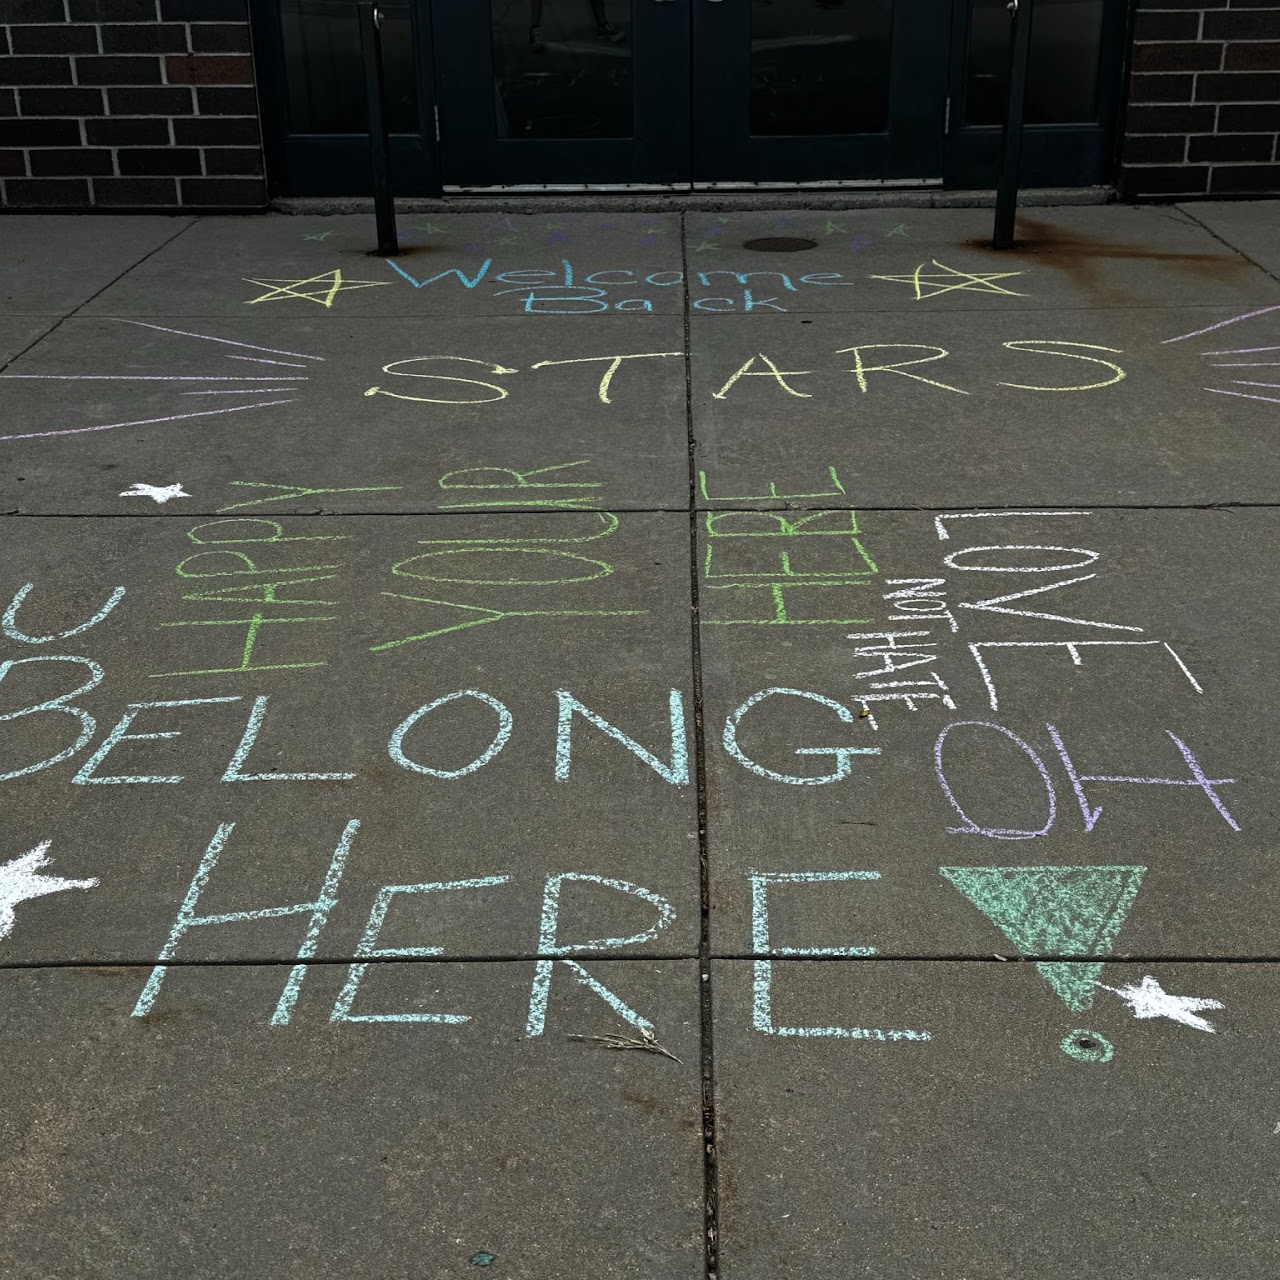 Welcome
Back
STARS
HAPPY
YOUR
HERE
LOVE
NOT HATE
U
BELONG
HERE!